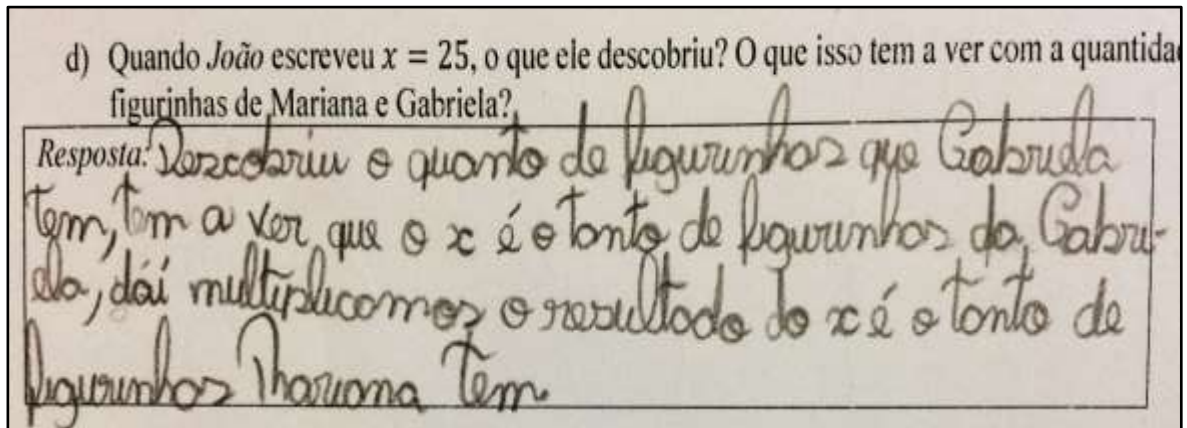 d) Quando João escreveu x = 25, o que ele descobriu? O que isso tem a ver com a quantida
figurinhas de Mariana e Gabriela?
Resposta: Descobriu o quanto de figurinhas que Gabriela
tem, tem a ver que o x é o tanto de figurinhas da Gabri-
ela, dái multiplicamos o resultado do x é o tanto de
figurinhas Mariana tem.